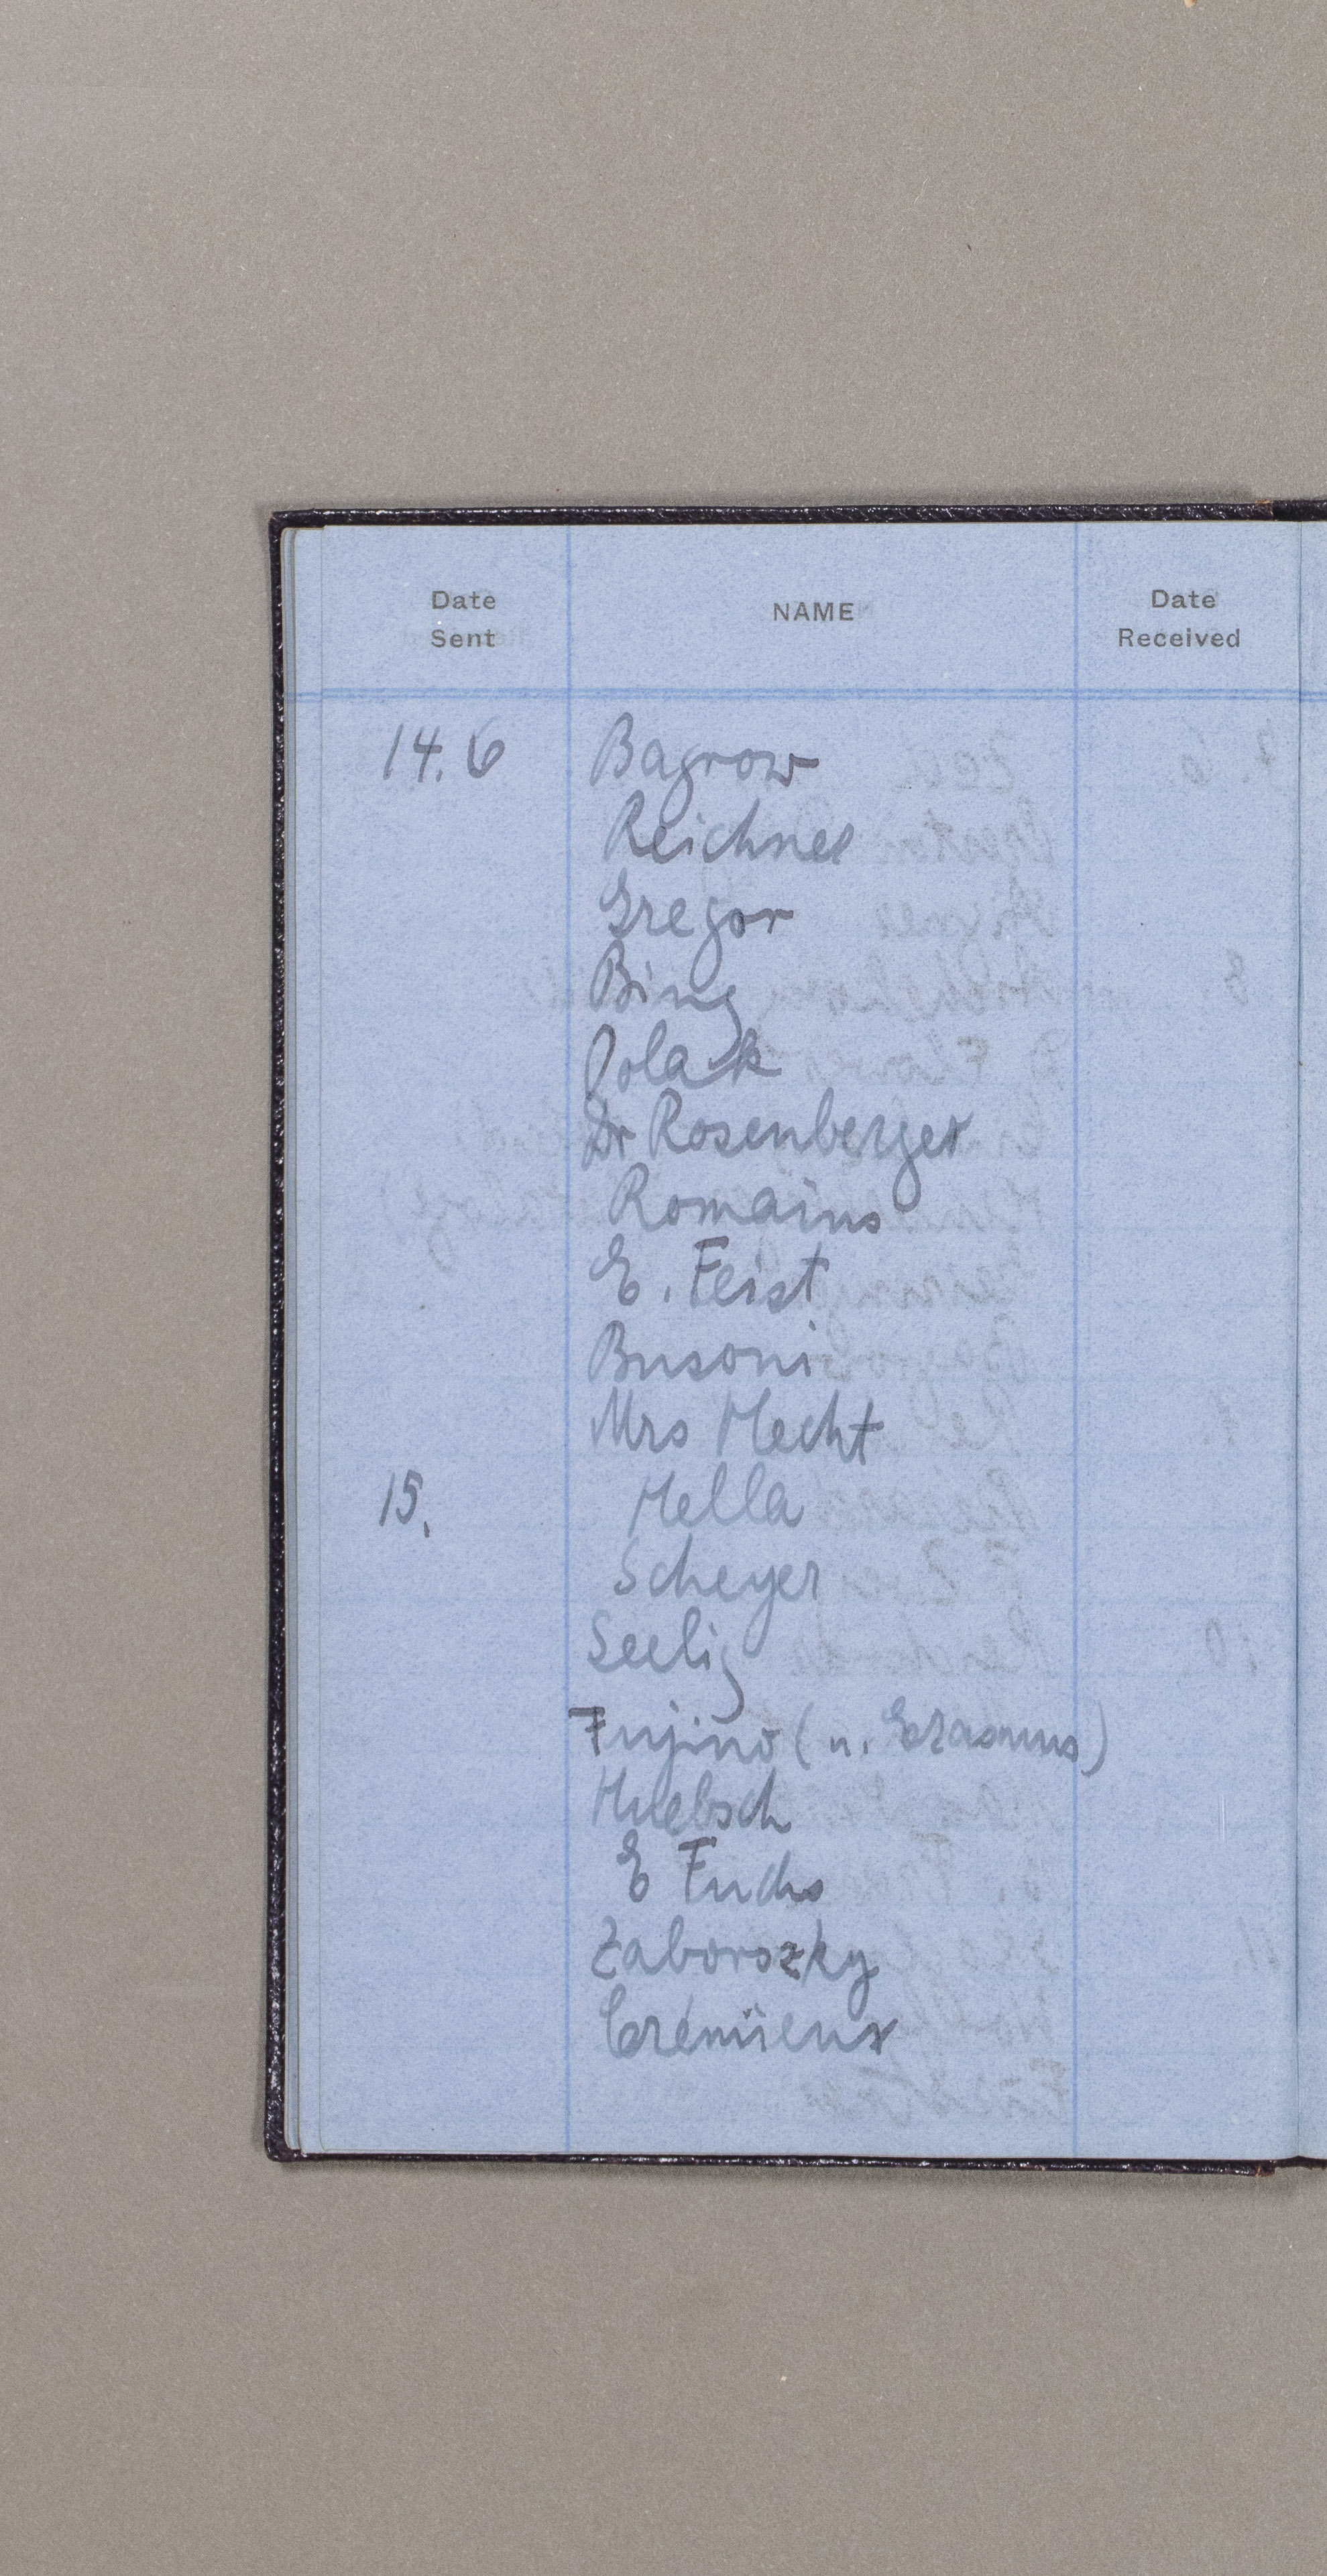 Date Sent NAME Date Received
14.6 Bagrow
Reichner
Gregor
Bing
Polak
Dr Rosenberger
Romains
E. Feist
Busoni
Mrs Hecht
15. Hella
Scheyer
Seelig
Fujino (u. Erasmus)
Huebsch
E Fuchs
Zaborszky
Crémieux